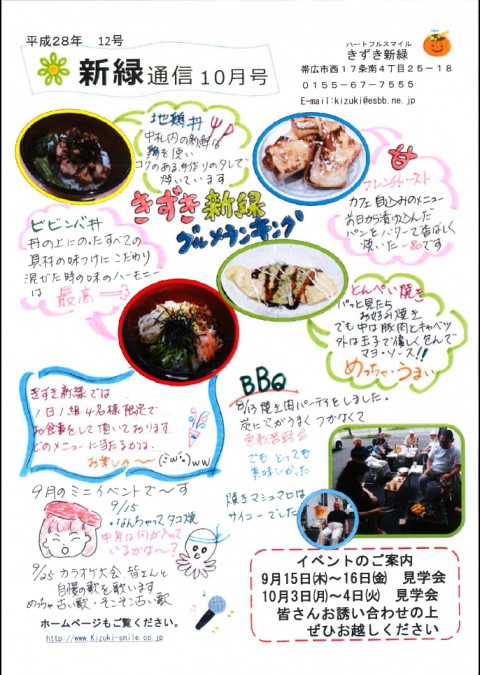 平成28年　12号
新緑通信10月号
ハートフルスマイル
きずき新緑
帯広市西17条南4丁目25-18
0155-67-7555
E-mail:kizuki@esbb.ne.jp
地鶏丼
中札内の新鮮な
鶏を使い
コクのある手作りのタレで
焼いています
フレンチトースト
カフェ自まんのメニュー
前日から漬け込んだ
パンをバターで香ばしく
焼いた一品です
きずき新緑
グルメランキング
ビビンバ丼
丼の上にのったすべての
具材の味つけにこだわり
混ぜた時の味のハーモニー
は
最高
とんぺい焼き
パッと見たら
お好み焼き
でも中は豚肉とキャベツ
外は玉子で優しく包んで
マヨ・ソース!!
めっちゃ・うまい
きずき新緑では
1日1組4名様限定で
お食事をして頂いております
どのメニューに当たるかは、
お楽しみ〜
ww
BBQ
8/13焼き肉パーティをしました。
炭に火がうまくつかなくて
でもとっても
美味しかった
焼きマシュマロは
サイコーでした
9月のミニイベントで〜す
9/15
・なんちゃってタコ焼
中身は何が入って
いるかな〜?
9/25 カラオケ大会、皆さんと
自慢の歌を歌います
めっちゃ古い歌・そこそこ古い歌
イベントのご案内
9月15日(木)〜16日(金)　見学会
10月3日(月)〜4日(火)　見学会
皆さんお誘い合わせの上
ぜひお越しください
ホームページもご覧ください。
http://www.Kizuki-smile.co.jp